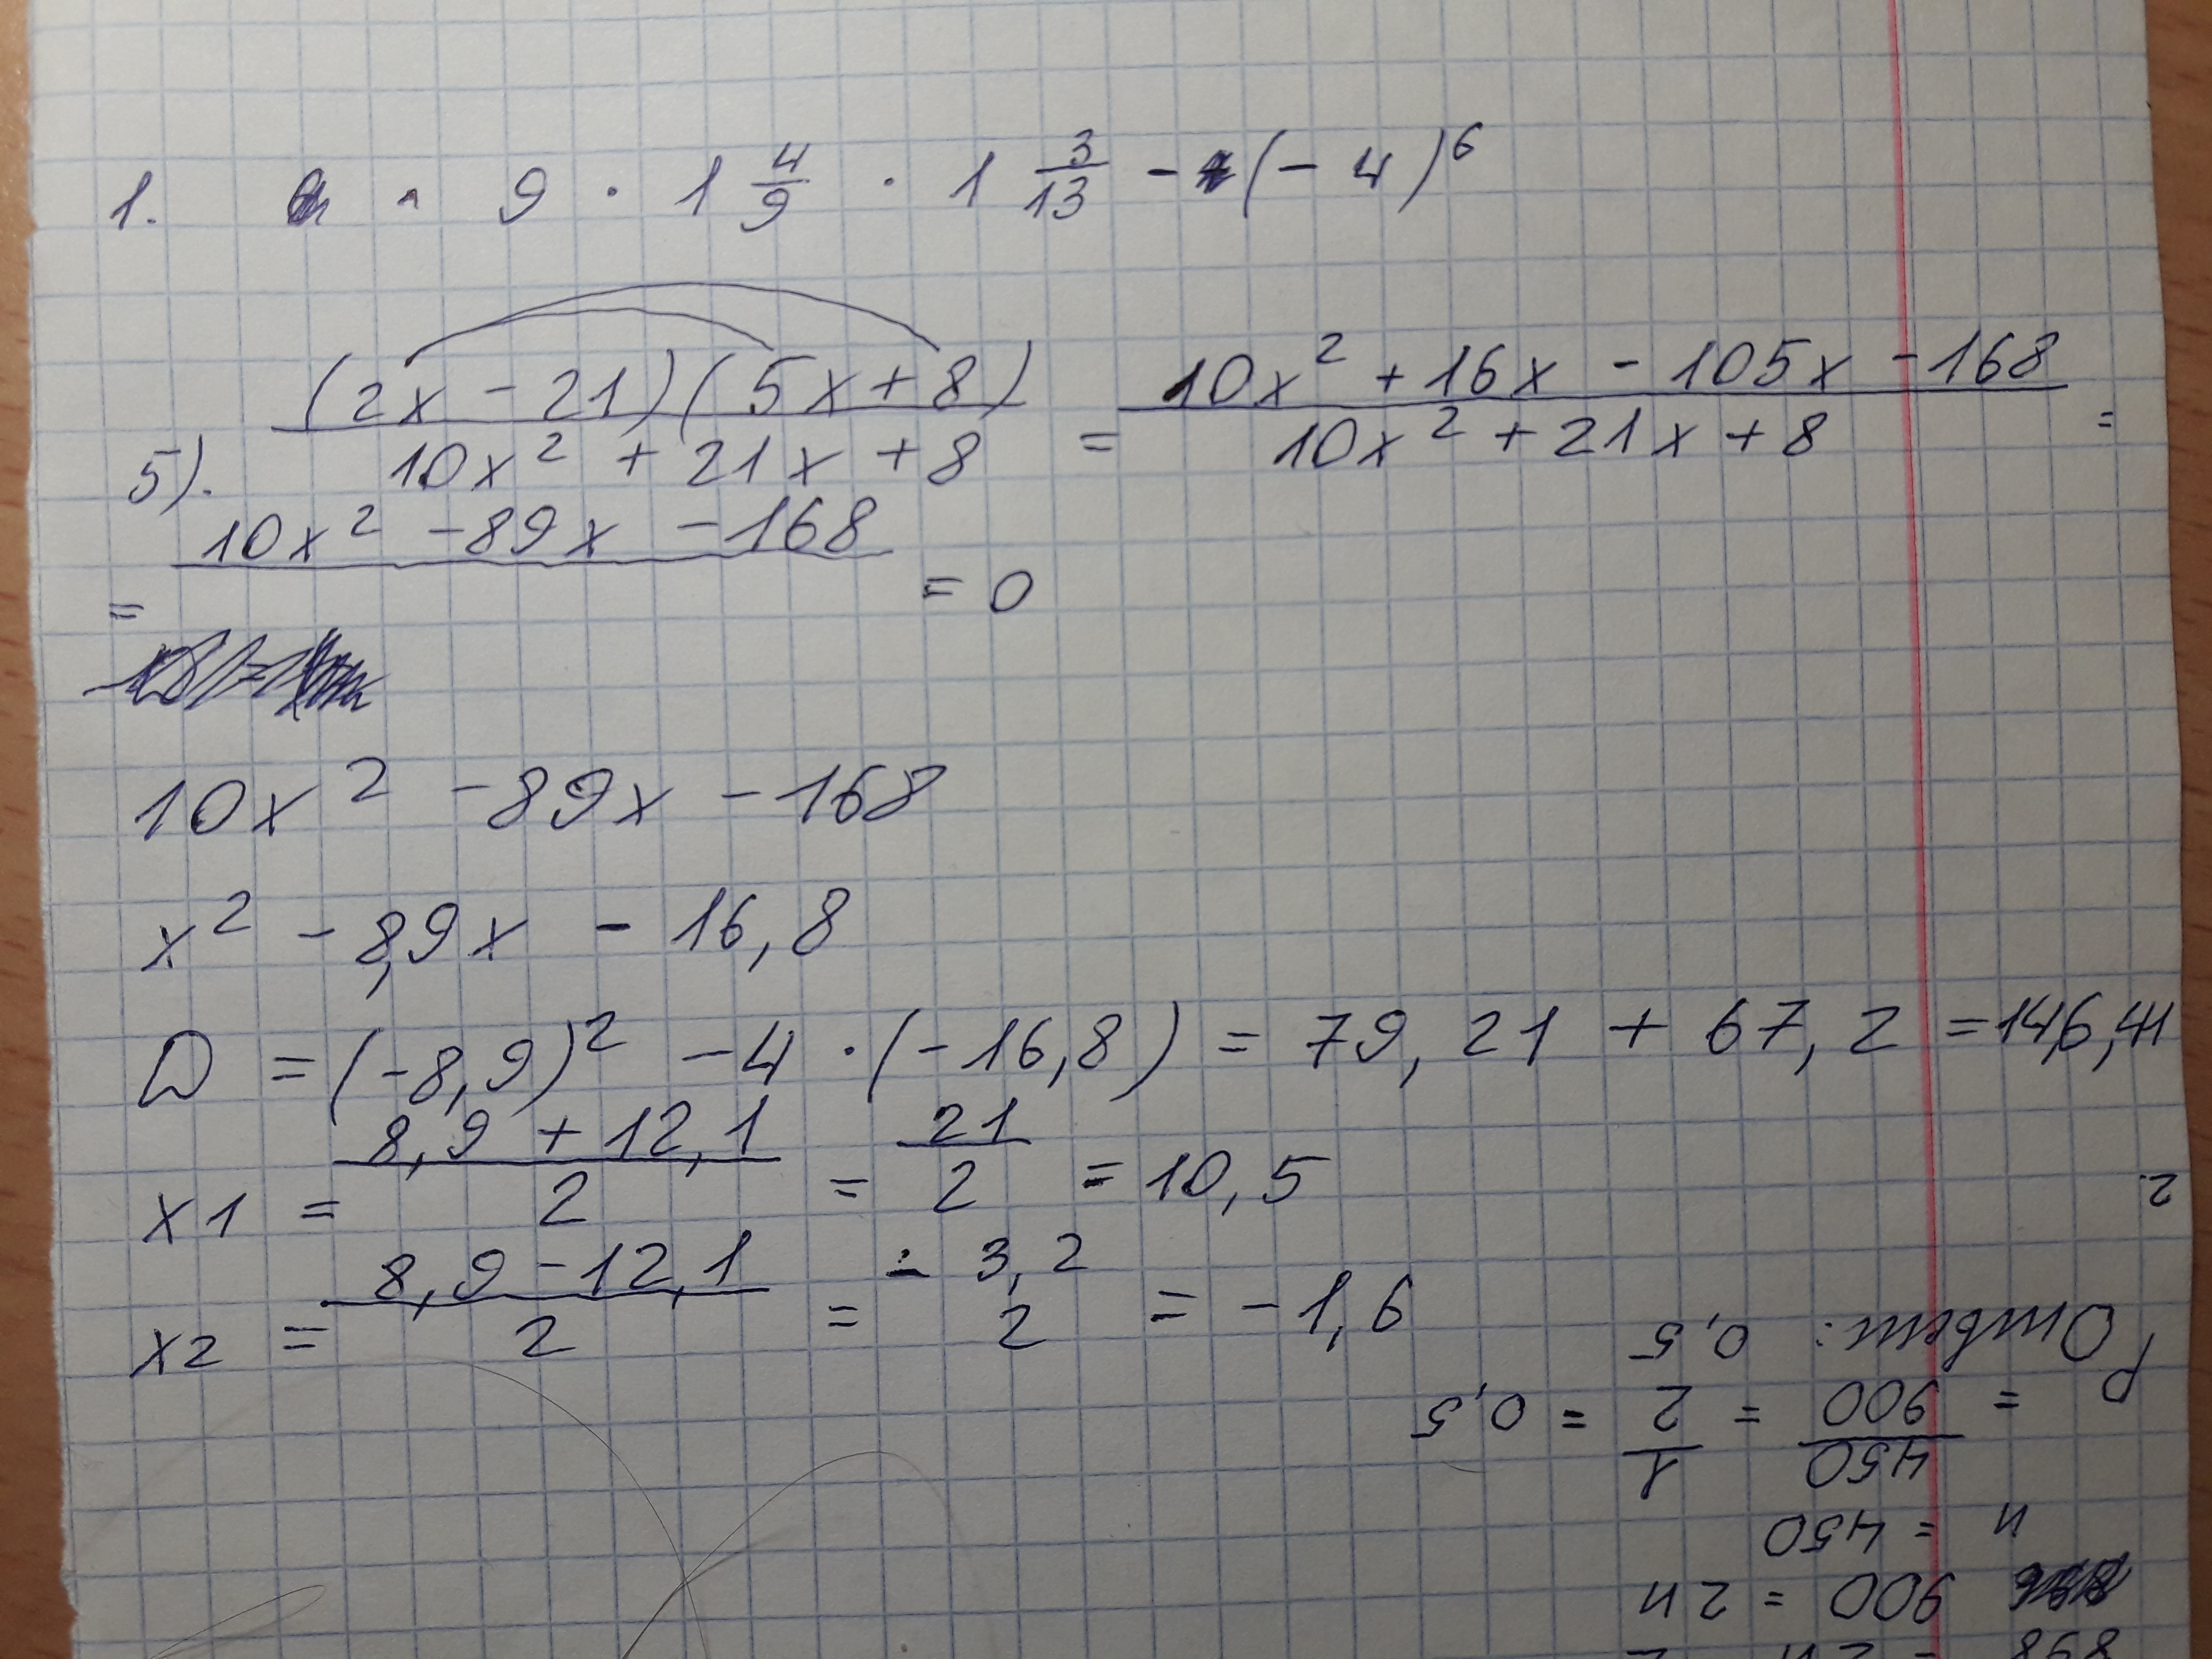 1. · 9 · 1 4/9 · 1 3/13 - (-4)^6
5). (2x - 21)(5x + 8) / 10x² + 21x + 8 = 10x² + 16x - 105x - 168 / 10x² + 21x + 8 =
= 10x² - 89x - 168 / = 0
10x² - 89x - 168
x² - 8,9x - 16,8
D = (-8,9)² - 4 · (-16,8) = 79,21 + 67,2 = 146,41
x1 = 8,9 + 12,1 / 2 = 21 / 2 = 10,5
x2 = 8,9 - 12,1 / 2 = - 3,2 / 2 = -1,6
900 = 2n
n = 450
P = 450/900 = 1/2 = 0,5
Ответ: 0,5
2.